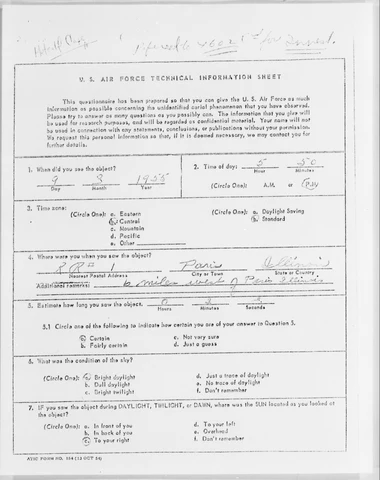 U. S. AIR FORCE TECHNICAL INFORMATION SHEET
This questionnaire has been prepared so that you can give the U. S. Air Force as much
information as possible concerning the unidentified aerial phenomenon that you have observed.
Please try to answer as many questions as you possibly can. The information that you give will
be used for research purposes, and will be regarded as confidential material. Your name will not
be used in connection with any statements, conclusions, or publications without your permission.
We request this personal information so that, if it is deemed necessary, we may contact you for
further details.
1. When did you see the object?
9 3 1955
Day Month Year
2. Time of day: 5 50
Hour Minutes
(Circle One): A.M. or P.M.
3. Time zone:
(Circle One): a. Eastern
b. Central
c. Mountain
d. Pacific
e. Other
(Circle One): a. Daylight Saving
b. Standard
4. Where were you when you saw the object?
R R # 1 Paris Illinois
Nearest Postal Address City or Town State or Country
Additional remarks: 6 miles west of Paris Illinois
5. Estimate how long you saw the object. 0
Hours Minutes Seconds
5.1 Circle one of the following to indicate how certain you are of your answer to Question 5.
a. Certain c. Not very sure
b. Fairly certain d. Just a guess
6. What was the condition of the sky?
(Circle One): a. Bright daylight d. Just a trace of daylight
b. Dull daylight e. No trace of daylight
c. Bright twilight f. Don't remember
7. IF you saw the object during DAYLIGHT, TWILIGHT, or DAWN, where was the SUN located as you looked at
the object?
(Circle One): a. In front of you d. To your left
b. In back of you e. Overhead
c. To your right f. Don't remember
ATIC FORM NO. 164 (13 OCT 54)